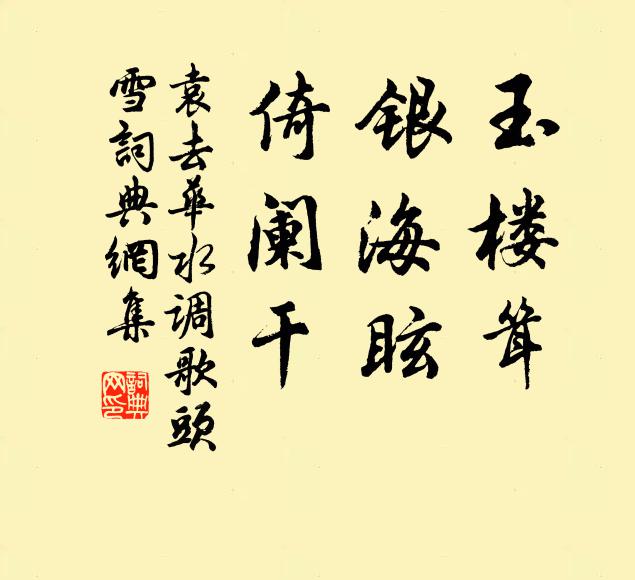 玉楼耸
银海眩
倚阑干
袁去华水调歌頭
雪詞典網集
詞典网印